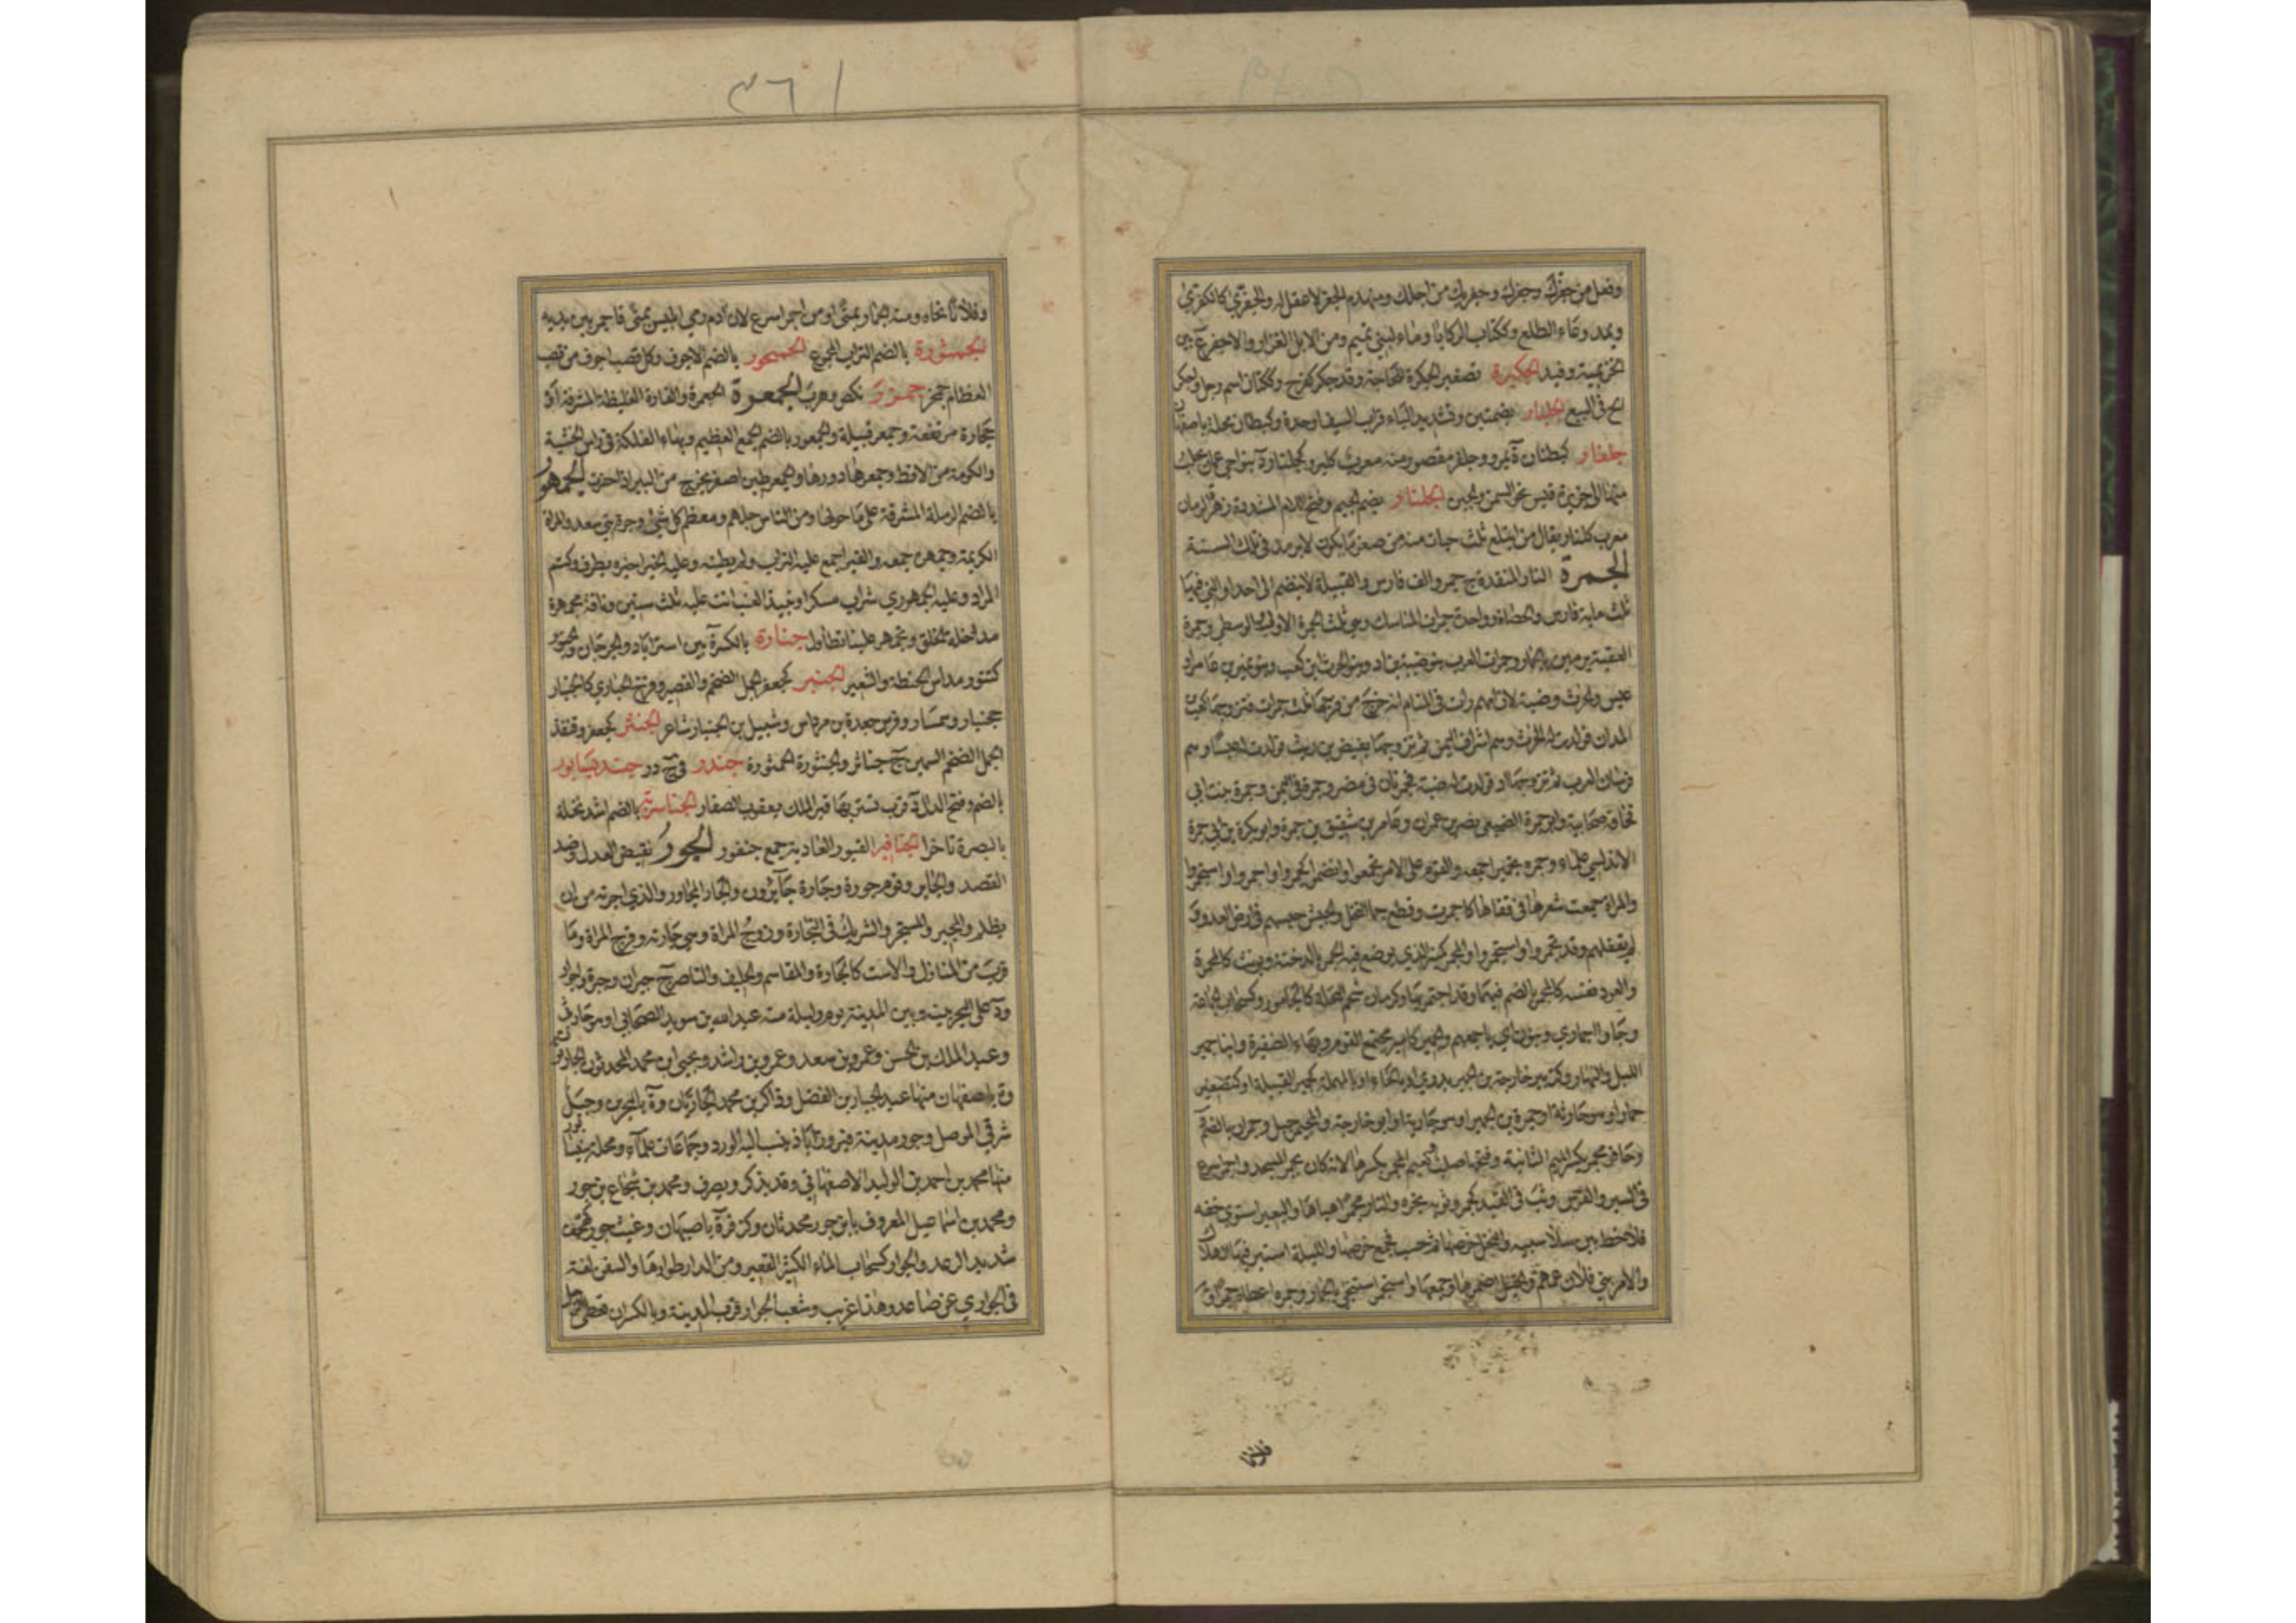 وفعل من جفرك وجفرك وجفرتك من اجلك ومنهدم الجفر لا عقل له والجفرى كالكفرى
ويمد وعاء الطلع وككتاب الركايا وماء لبني تميم ومن الابل الغزار والاجفر ع بين
الخزيمية وفيد الجكيرة تصغير الجكرة للحاجة وقد جكر كفرح وككتان اسم رجل واجكر
الح في البيع الجلبار بضمتين وتشديد الباء قراب السيف او حده وكبطنان محلة باصفهان
جلفار كبطنان ة بمرو وجلفر مقصور منه معرب كلبر وكجلنار د بنواحي عمان يجلب
منها الى جزيرة قيس نحو السمن والجبن الجلنار بضم الجيم وفتح اللام المشددة زهر الرمان
معرب كلنار يقال من ابتلع ثلث حبات منه من اصغر ما يكون لا يرمد في تلك السنة
الجمرة النار المتقدة ج جمر والف فارس والقبيلة لا تنضم الى احد او التي فيها
ثلث ماية فارس والحصاة وواحدة جمرات المناسك وهي ثلث الجمرة الاولى والوسطى وجمرة
العقبة يرمين بالجمار وجمرات العرب بنو ضبة بن اد وبنو الحرث بن كعب وبنو نمير بن عامر او
عبس والحرث وضبة لان امهم رات في المنام انه خرج من فرجها ثلث جمرات فتزوجها كعب بن
المدان فولدت له الحرث وهم اشراف اليمن ثم تزوجها بغيض بن ريث فولدت له عبسا وهم
فرسان العرب ثم تزوجها اد فولدت له ضبة فجمرتان في مضر وجمرة في اليمن وجمرة بنت ابي
قحافة صحابية وابو جمرة الضبعي نصر بن عمران وعامر بن شقيق بن جمرة وابو بكرة بن ابي جمرة
الاندلسي علماء وجمره تجميرا جمعه والقوم على الامر تجمعوا وانضموا كجمروا واجمروا واستجمروا
والمراة جمعت شعرها في قفاها كاجمرت وقطع جمار النخل والجيش حبسهم في ارض العدو و
لم يقفلهم وقد تجمروا واستجمروا والمجمر كمنبر الذي يوضع فيه الجمر بالدخنة ويونث كالمجمرة
والعود نفسه كالمجمر بالضم فيهما وقد اجتمر بها وكرمان شحم النخلة كالجامور وكسحاب الجماعة
وجاوا جمارى وينون اي باجمعهم والجمير كامير مجتمع القوم وبهاء الضفيرة وابنا جمير
الليل والنهار وكزبير خارجة بن الجمير بدري او بالخاء او بالمهملة كحمير القبيلة او كتصغير
حمار او هو حارثة او حمرة بن الجمير او هو جارية او ابو خارجة والجيمر جبل وجمران بالضم د
وحافر مجمر بكسر الميم الثانية وفتحها صلب ونعيم المجمر بكسرها لانه كان يجمر المسجد واجمر اسرع
في السير والفرس وثب في القيد كجمر وثوبه بخره والنار مجمرا هياها والبعير استوى خفه
فلا خط بين سلامييه والنخل خرصها ثم حسب فجمع خرصها والليلة استسر فيها الهلال
والامر بني فلان عمهم والخيل اضمرها وجمعها واستجمر استنجى بالجمار وجمره اعطاه جمرا و
فلانا
٣٦١
وفلانا نحاه ومنه الجمار بمنى او من اجمر اسرع لان آدم رمى ابليس بمنى فاجمر بين يديه
الجمثورة بالضم التراب المجموع الجمحور بالضم الاجوف وكل قصب اجوف من قصب
العظام جمخر جمزر نكص وهرب الجمعرة الجمعرة والقارة الغليظة المشرفة او
حجارة مرتفعة وجمعر قبيلة والجمعور بالضم الجمع العظيم وبهاء الفلكة في راس الخشبة
والكومة من الاقط وجمعرها دورها والجمعر طين اصفر يخرج من البير اذا حفرت الجمهور
بالضم الرملة المشرفة على ما حولها ومن الناس جلهم ومعظم كل شيء وحرة بني سعد والمراة
الكريمة وجمهره جمعه والقبر جمع عليه التراب ولم يطينه وعليه الخبر اخبره بطرف وكتم
المراد وعليه الجمهوري شراب مسكر او نبيذ العنب اتت عليه ثلث سنين وناقة مجمهرة
مداخلة الخلق وتجمهر علينا تطاول جنارة بالكسر ة بين استراباد والجرجان والجنور
كتنور مداس الحنطة والشعير الجنبر كجعفر الجمل الضخم والقصير وفرخ الحبارى كالجنبار
كجنبار وسمسار وفرس جعدة بن مرداس وشبيل بن الجنبار شاعر الجنثر كجعفر وقنفذ
الجمل الضخم السمين ج جناثر والجنثورة الجمثورة جندر في ج در جنديسابور
بالضم وفتح الدال ة قرب تستر بها قبر الملك يعقوب الصفار الجناسرية بالضم اشد نخلة
بالبصرة تاخرا الجنافير القبور العادية جمع جنفور الجور نقيض العدل وضد
القصد والجاير وقوم جورة وجارة جائرون والجار المجاور والذي اجرته من ان
يظلم والمجير والمستجير والشريك في التجارة وزوج المراة وهي جارته وفرج المراة وما
قرب من المنازل والاست كالجارة والمقاسم والحليف والناصر ج جيران وجيرة واجوار
ود على البحر بينه وبين المدينة يوم وليلة منه عبد الله بن سويد الصحابي او هو حارثي
وعبد الملك بن الحسن وعمرو بن سعد وعمر بن راشد ويحيى بن محمد المحدثون الجاريون
وة باصفهان منها عبد الجبار بن الفضل وذاكر بن محمد الجاريان وة بالبحرين وجبل
شرقي الموصل وجور مدينة فيروزآباذ ينسب اليها الورد وجماعات علماء ومحلة بنيسابور
منها محمد بن احمد بن الوليد الاصفهاني وقد يذكر ويصرف ومحمد بن شجاع بن جور
ومحمد بن اسماعيل المعروف بابن جور محدثان وكزفر ة باصبهان وغيث جور كهجف
شديد الرعد والجوار كسحاب الماء الكثير القعير ومن الدار طوارها والسفن لغة
في الجواري عن صاعد وهذا غريب وشعب الجوار قرب المدينة وبالكسر ان تعطي الرجل